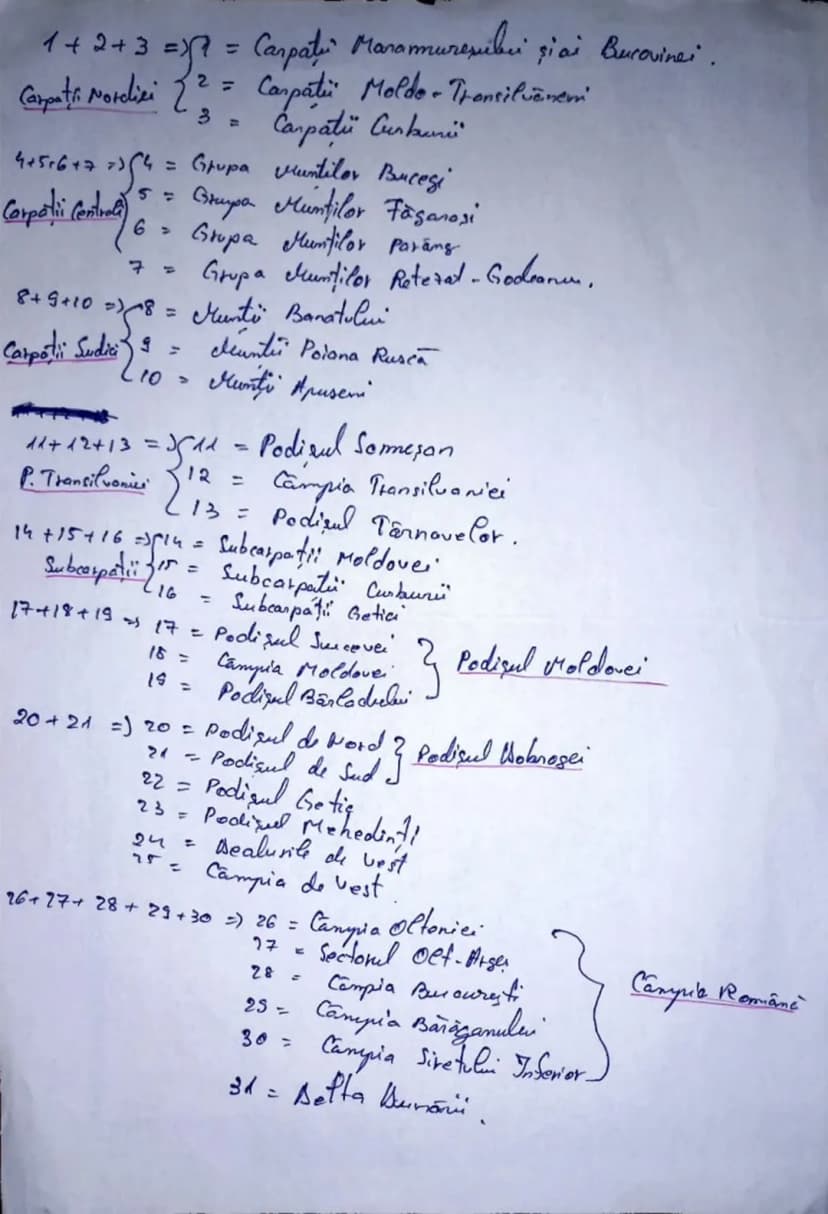 1 + 2 + 3 => 1 = Carpații Maramureșului și ai Bucovinei.
Carpații Nordici 2 = Carpații Moldo-Transilvăneni
3 = Carpații Curburii
4+5+6+7 => 4 = Grupa Munților Bucegi
Carpații Centrali 5 = Grupa Munților Făgărași
6 = Grupa Munților Parâng
7 = Grupa Munților Retezat-Godeanu.
8+9+10 => 8 = Munții Banatului
Carpații Sudici 9 = Munții Poiana Ruscă
10 = Munții Apuseni
11+12+13 => 11 = Podișul Someșan
P. Transilvaniei 12 = Câmpia Transilvaniei
13 = Podișul Târnavelor.
14+15+16 => 14 = Subcarpații Moldovei
Subcarpații 15 = Subcarpații Curburii
16 = Subcarpații Getici
17+18+19 => 17 = Podișul Sucevei
18 = Câmpia Moldovei
Podișul Moldovei
19 = Podișul Bârladului
20+21 => 20 = Podișul de Nord
21 = Podișul de Sud
Podișul Dobrogei
22 = Podișul Getic
23 = Podișul Mehedinți
24 = Dealurile de Vest
25 = Câmpia de Vest.
26+27+28+29+30 => 26 = Câmpia Olteniei
27 = Sectorul Olt-Argeș
28 = Câmpia București
Câmpia Română
29 = Câmpia Bărăganului
30 = Câmpia Siretului Inferior
31 = Delta Dunării.